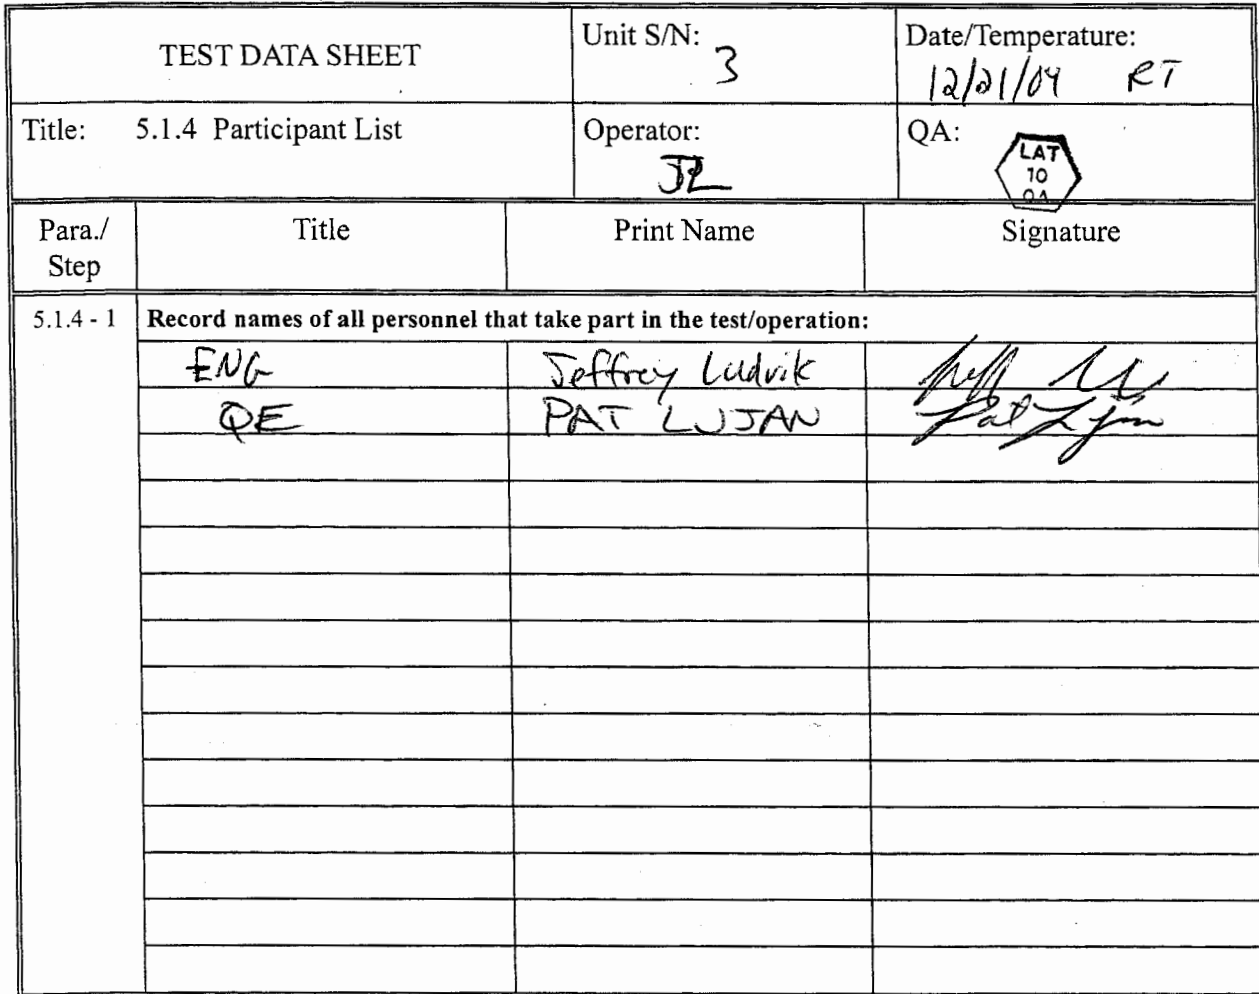 TEST DATA SHEET
Unit S/N:
3
Date/Temperature:
12/21/04 RT
Title: 5.1.4 Participant List
Operator:
JL
QA:
LAT
10
QA
Para./
Step
Title
Print Name
Signature
5.1.4 - 1
Record names of all personnel that take part in the test/operation:
ENG Jeffrey Ludvik
QE PAT LUJAN Pat Lujan